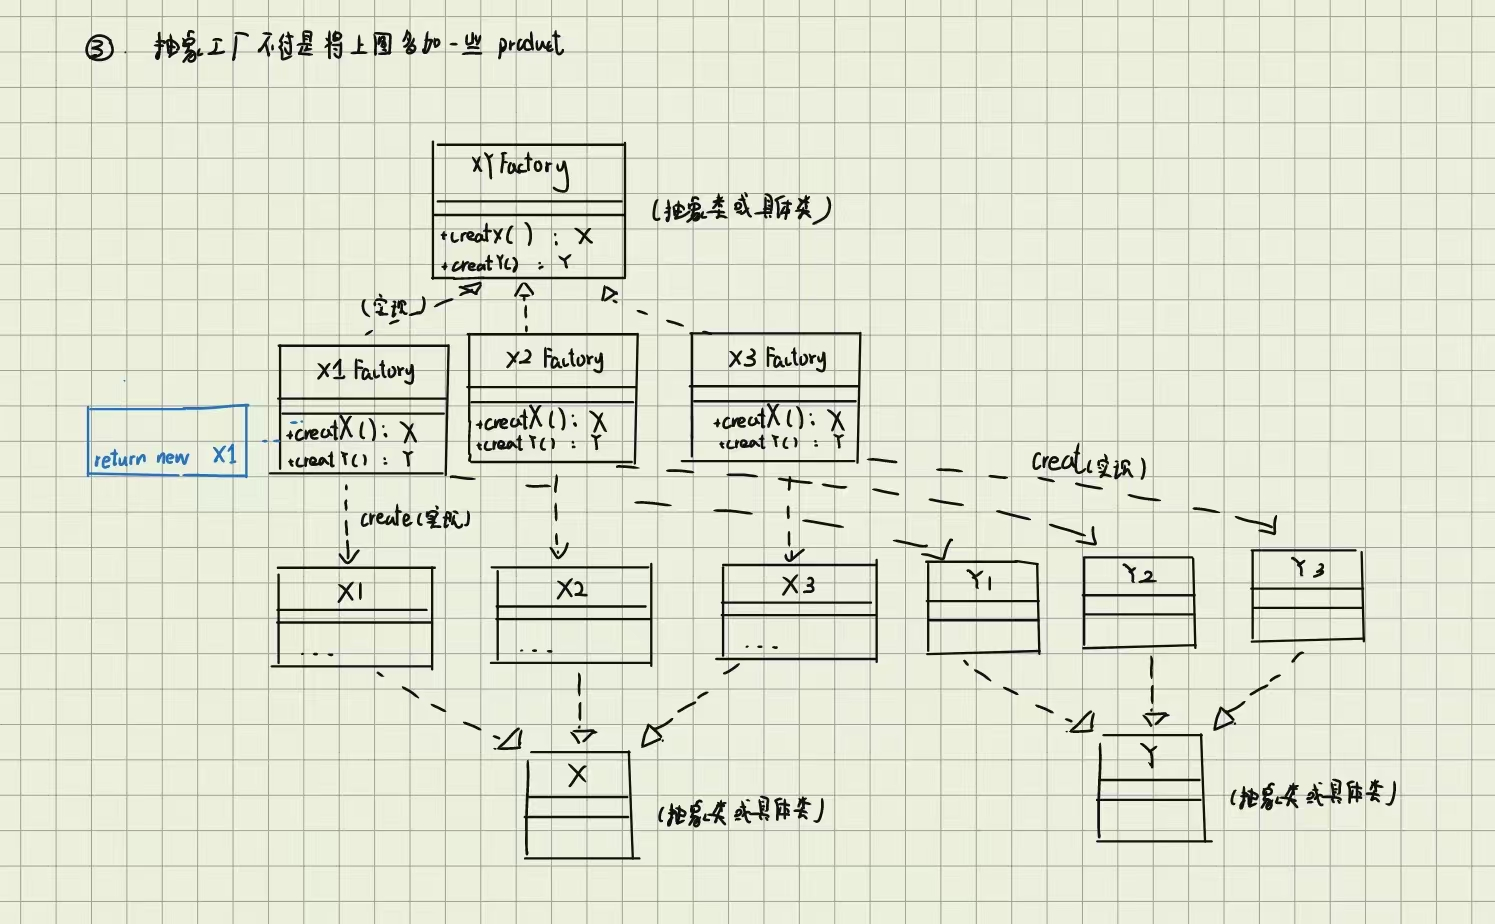 ③. 抽象工厂不过是将上图多加一些 product
XY Factory
+creatX( ) : X
+creatY() : Y
(抽象类或具体类)
(实现)
X1 Factory
+creatX(): X
+creatY() : Y
X2 Factory
+creatX(): X
+creatY() : Y
X3 Factory
+creatX(): X
+creatY() : Y
return new X1
create(实现)
creat(实现)
X1
...
X2
...
X3
...
Y1
Y2
Y3
X
(抽象类或具体类)
Y
(抽象类或具体类)